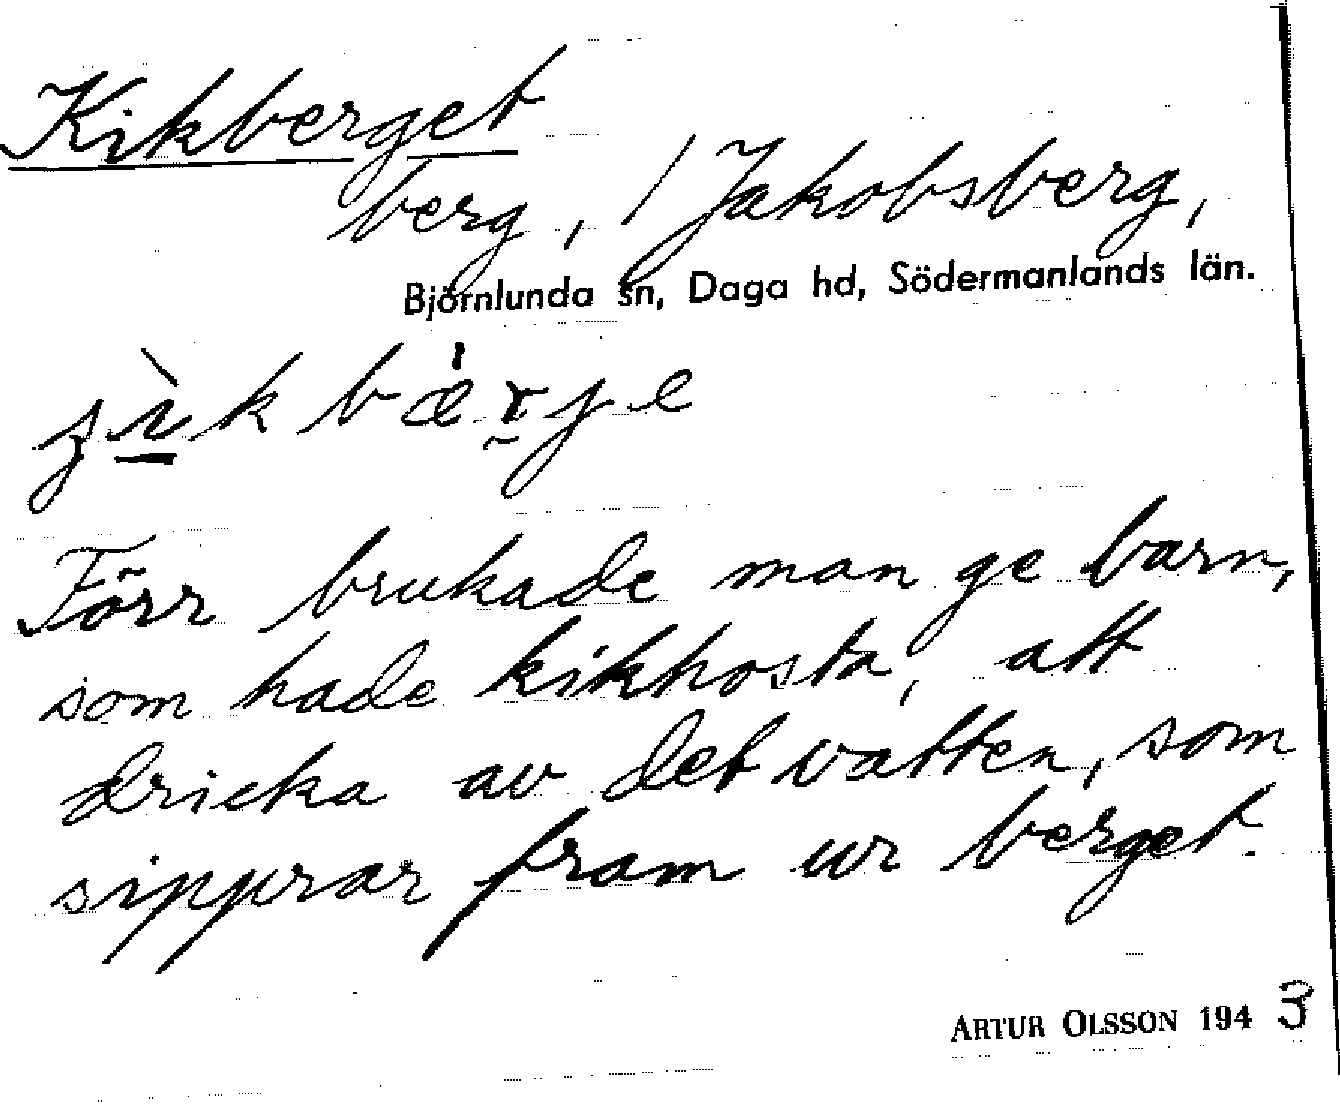 Kikberget
berg, / Jakobsberg,
Björnlunda sn, Daga hd, Södermanlands län.
Förr brukade man ge barn,
som hade kikhosta, att
dricka av det vatten, som
sipprar fram ur berget.
ARTUR OLSSON 1943